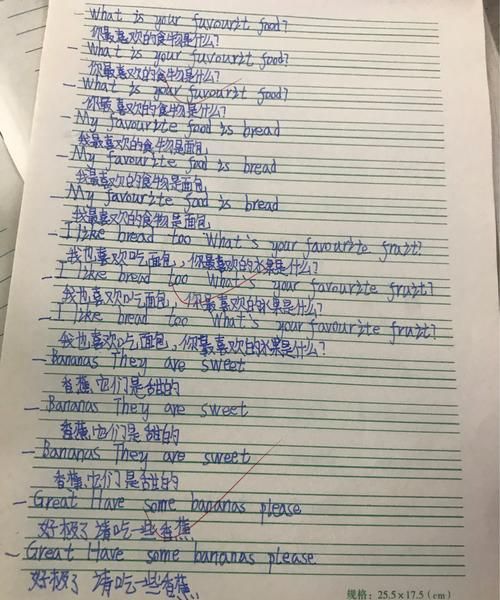 - What is your favourit food?
你最喜欢的食物是什么?
- What is your favourit food?
你最喜欢的食物是什么?
- What is your favourit food?
你最喜欢的食物是什么?
- My favourite food is bread
我最喜欢的食物是面包
- My favourite food is bread
我最喜欢的食物是面包
- My favourite food is bread
我最喜欢的食物是面包
- I like bread too What's your favourite fruit?
我也喜欢吃面包,你最喜欢的水果是什么?
- I like bread too What's your favourite fruit?
我也喜欢吃面包,你最喜欢的水果是什么?
- I like bread too What's your favourite fruit?
我也喜欢吃面包,你最喜欢的水果是什么?
- Bananas They are sweet
香蕉,它们是甜的
- Bananas They are sweet
香蕉,它们是甜的
- Bananas They are sweet
香蕉,它们是甜的
- Great Have some bananas please
好极了请吃一些香蕉
- Great Have some bananas please
好极了 请吃一些香蕉
规格:25.5×17.5(cm)